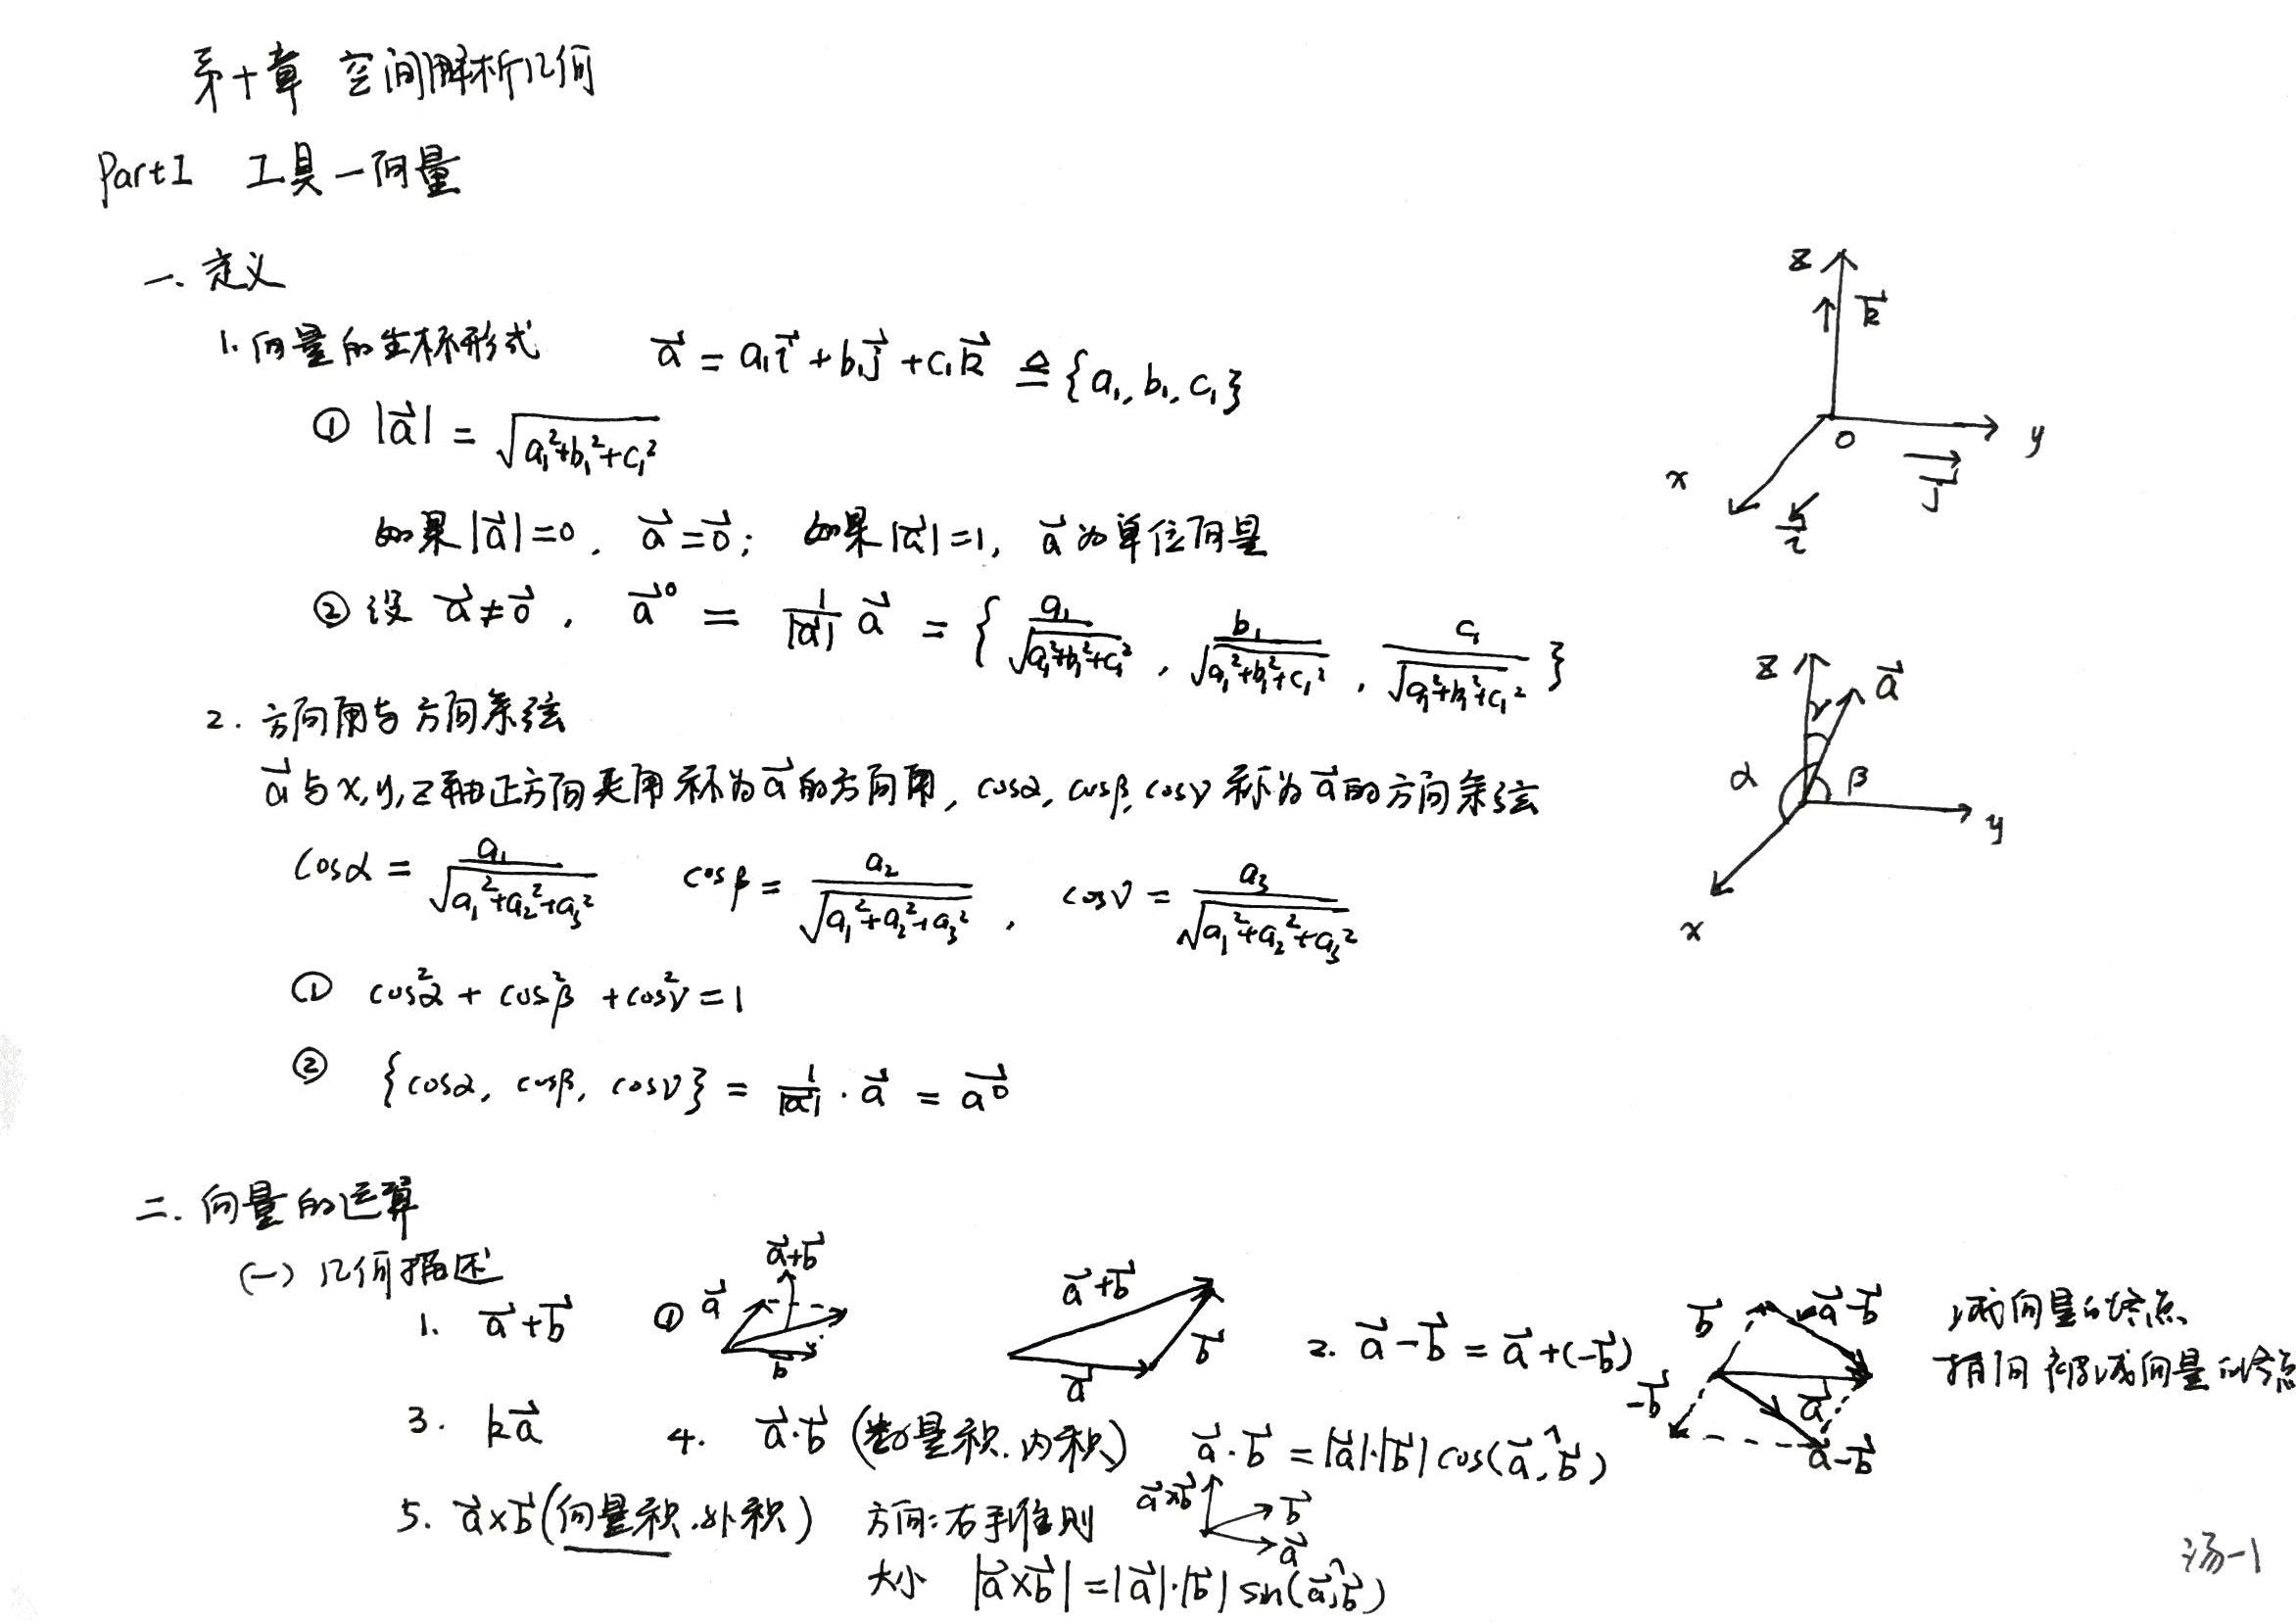 第十章 空间解析几何
Part I 工具—向量
一. 定义
1. 向量的坐标形式 $\vec{a} = a_1\vec{i} + b_1\vec{j} + c_1\vec{k} \triangleq \{a_1, b_1, c_1\}$
① $|\vec{a}| = \sqrt{a_1^2+b_1^2+c_1^2}$
如果$|\vec{a}|=0$, $\vec{a}=\vec{0}$; 如果$|\vec{a}|=1$, $\vec{a}$为单位向量
② 设 $\vec{a}\neq\vec{0}$, $\vec{a}^0 = \frac{1}{|\vec{a}|}\vec{a} = \{\frac{a_1}{\sqrt{a_1^2+b_1^2+c_1^2}}, \frac{b_1}{\sqrt{a_1^2+b_1^2+c_1^2}}, \frac{c_1}{\sqrt{a_1^2+b_1^2+c_1^2}}\}$
z
$\vec{k}$
O
y
x
$\vec{j}$
$\vec{i}$
2. 方向角与方向余弦
$\vec{a}$与x,y,z轴正方向夹角称为$\vec{a}$的方向角, cosα, cosβ, cosγ称为$\vec{a}$的方向余弦
$\cos\alpha = \frac{a_1}{\sqrt{a_1^2+a_2^2+a_3^2}}$ $\cos\beta = \frac{a_2}{\sqrt{a_1^2+a_2^2+a_3^2}}$, $\cos\gamma = \frac{a_3}{\sqrt{a_1^2+a_2^2+a_3^2}}$
① $\cos^2\alpha + \cos^2\beta + \cos^2\gamma = 1$
② $\{\cos\alpha, \cos\beta, \cos\gamma\} = \frac{1}{|\vec{a}|}\cdot\vec{a} = \vec{a^0}$
z
$\vec{a}$
γ
α
β
y
x
二. 向量的运算
(一) 几何描述
1. $\vec{a}+\vec{b}$ ① $\vec{a}$ $\vec{a}+\vec{b}$ $\vec{b}$
$\vec{a}+\vec{b}$ $\vec{b}$ $\vec{a}$
2. $\vec{a}-\vec{b} = \vec{a}+(-\vec{b})$
$\vec{b}$ $\vec{a}-\vec{b}$ $-\vec{b}$ $\vec{a}$ $\vec{a}-\vec{b}$
减向量的终点
指向被减向量的终点
3. $k\vec{a}$ 4. $\vec{a}\cdot\vec{b}$ (数量积.内积) $\vec{a}\cdot\vec{b} = |\vec{a}|\cdot|\vec{b}|\cos(\widehat{\vec{a},\vec{b}})$
5. $\vec{a}\times\vec{b}$ (向量积.外积) 方向:右手准则 $\vec{a}\times\vec{b}$ $\vec{b}$ $\vec{a}$
大小 $|\vec{a}\times\vec{b}| = |\vec{a}|\cdot|\vec{b}|\sin(\widehat{\vec{a},\vec{b}})$
汤-1